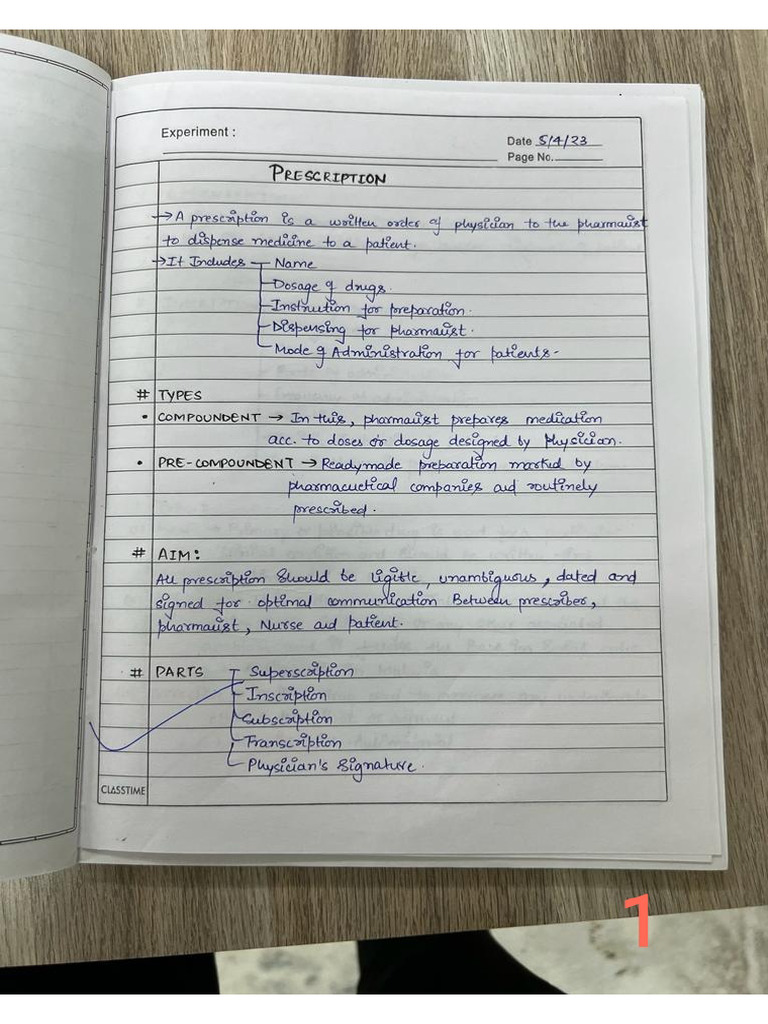 Experiment :
Date 5/4/23
Page No.
PRESCRIPTION
→ A prescription is a written order of physician to the pharmacist
to dispense medicine to a patient.
→ It Includes Name
Dosage of drugs.
Instruction for preparation.
Dispensing for pharmacist.
Mode of Administration for patients-
# TYPES
• COMPOUNDENT → In this, pharmacist prepares medication
acc. to doses or dosage designed by Physician.
• PRE-COMPOUNDENT → Readymade preparation marked by
pharmacuetical companies and routinely
prescribed.
# AIM:
All prescription should be ligible, unambiguous, dated and
signed for optimal communication Between prescriber,
pharmacist, Nurse and patient.
# PARTS Superscription
Inscription
Subscription
Transcription
Physician's Signature.
CLASSTIME
1